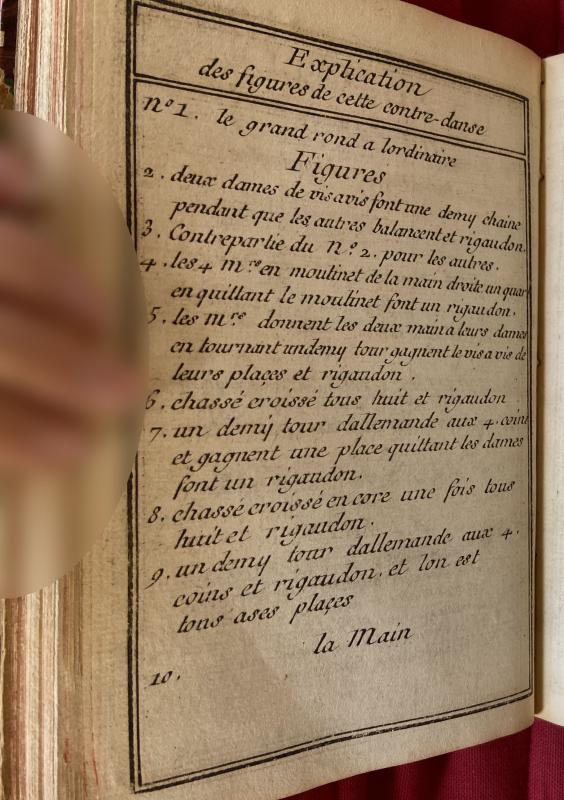 Explication
des figures de cette contre-danse
nº1. le grand rond a lordinaire
Figures
2. deux dames de visavis font une demy chaine
pendant que les autres balancent et rigaudon.
3. Contrepartie du nº 2. pour les autres.
4. les 4 mrs en moulinet de la main droite un quar
en quittant le moulinet font un rigaudon.
5. les mrs donnent les deux main a leurs dames
en tournant undemy tour gagnent le vis a vis de
leurs plaçes et rigaudon.
6. chassé croissé tous huit et rigaudon
7. un demy tour dallemande aux 4. coins
et gagnent une place quittant les dames
font un rigaudon.
8. chassé croissé encore une fois tous
huit et rigaudon.
9. un demy tour dallemande aux 4.
coins et rigaudon. et lon est
tous ases plaçes
la Main
10.